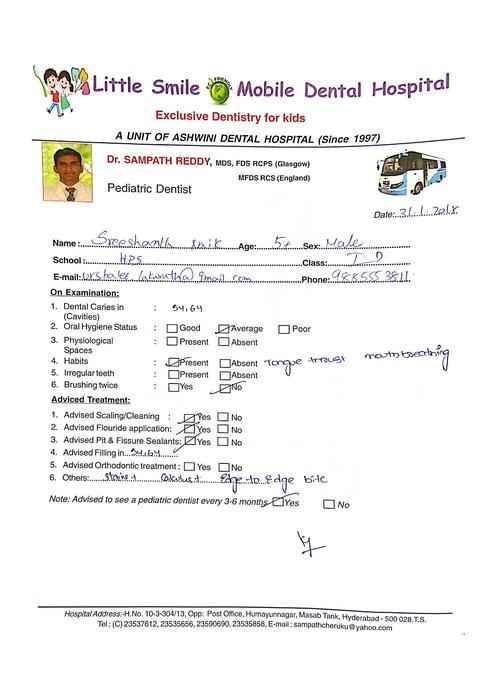 Little Smile ECO FRIENDLY Mobile Dental Hospital
Exclusive Dentistry for kids
A UNIT OF ASHWINI DENTAL HOSPITAL (Since 1997)
Dr. SAMPATH REDDY, MDS, FDS RCPS (Glasgow)
MFDS RCS (England)
Pediatric Dentist
Date: 31.1.2018
Name : Sreeshanth Naik Age: 5+ Sex: Male
School : HPS Class: I D
E-mail: @gmail.com Phone: 9885553811
On Examination:
1. Dental Caries in : 54,64
(Cavities)
2. Oral Hygiene Status : Good Average Poor
3. Physiological : Present Absent
Spaces
4. Habits : Present Absent Tongue thrust mouthbreathing
5. Irregular teeth : Present Absent
6. Brushing twice : Yes No
Adviced Treatment:
1. Advised Scaling/Cleaning : Yes No
2. Advised Flouride application: Yes No
3. Advised Pit & Fissure Sealants: Yes No
4. Advised Filling in 54,64
5. Advised Orthodontic treatment : Yes No
6. Others: Stains+ Calculus+ Edge-to Edge bite
Note: Advised to see a pediatric dentist every 3-6 months Yes No
Hospital Address:-H.No. 10-3-304/13, Opp: Post Office, Humayunnagar, Masab Tank, Hyderabad - 500 028.T.S.
Tel : (C) 23537612, 23535656, 23590690, 23535858, E-mail : sampathcheruku@yahoo.com